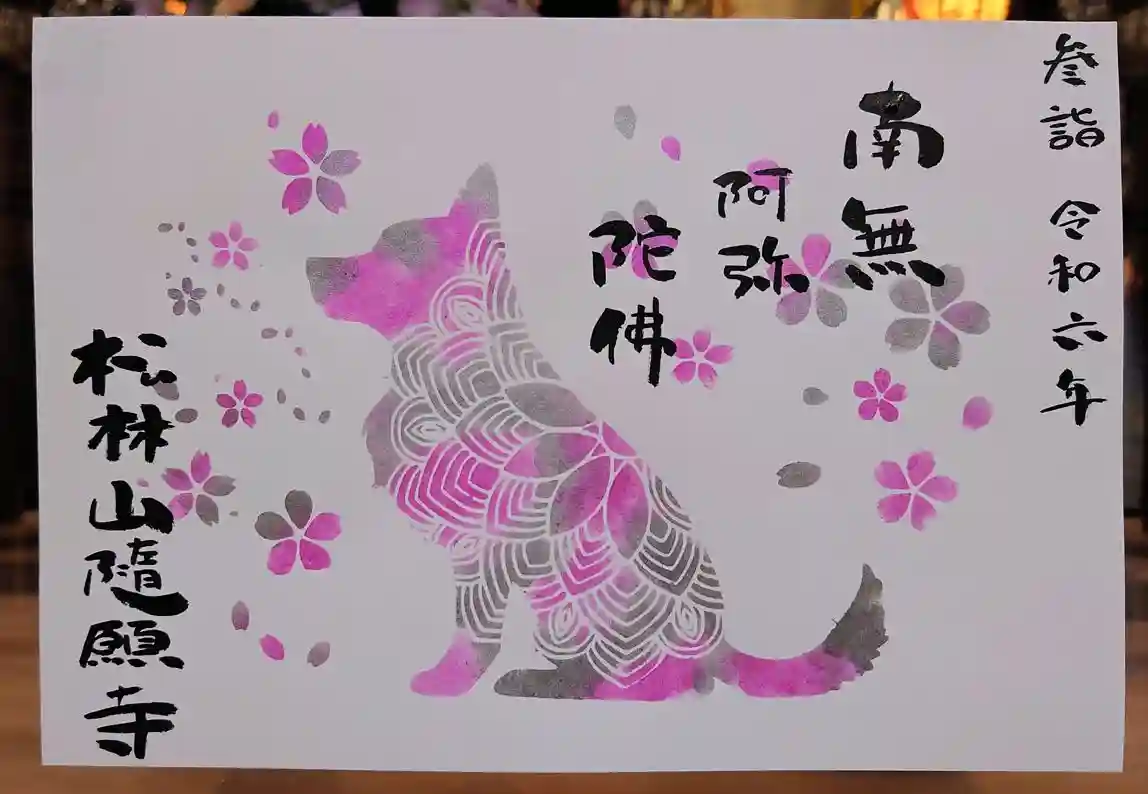 参詣 令和六年
南無
阿弥
陀佛
松林山随願寺